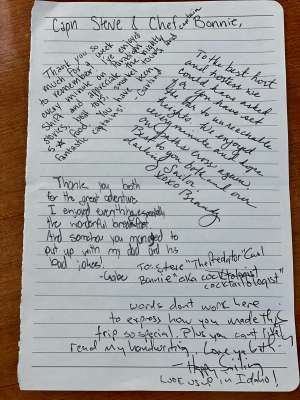 Capn Steve & Chef Captain Bonnie,
Thank you so
much for a week
to remember. I've enjoyed
every minute on
and appreciate the nightly
stories, boat tips, model boats and
5★ food. You have been
fantastic captains!
To the best host
and hostess we
could have asked
for. You have set
the bar to unreachable
heights. We enjoyed
every minute and hope
our paths cross again.
Best to you both and our
darling Savior.
XOXO Brandy
Thank you both
for the great adventure
I enjoyed everything especially
the wonderful breakfast.
And somehow you managed to
put up with my dad and his
bad jokes!
-Gabe
To: Steve "The Predator" Carl
Bonnie "aka cocktologist"
cocktailologist"
words don't work here
to express how you made this
trip so special. Plus you can't
read my handwriting. Love ya both
- Happy Sailing
Look us up in Idaho!